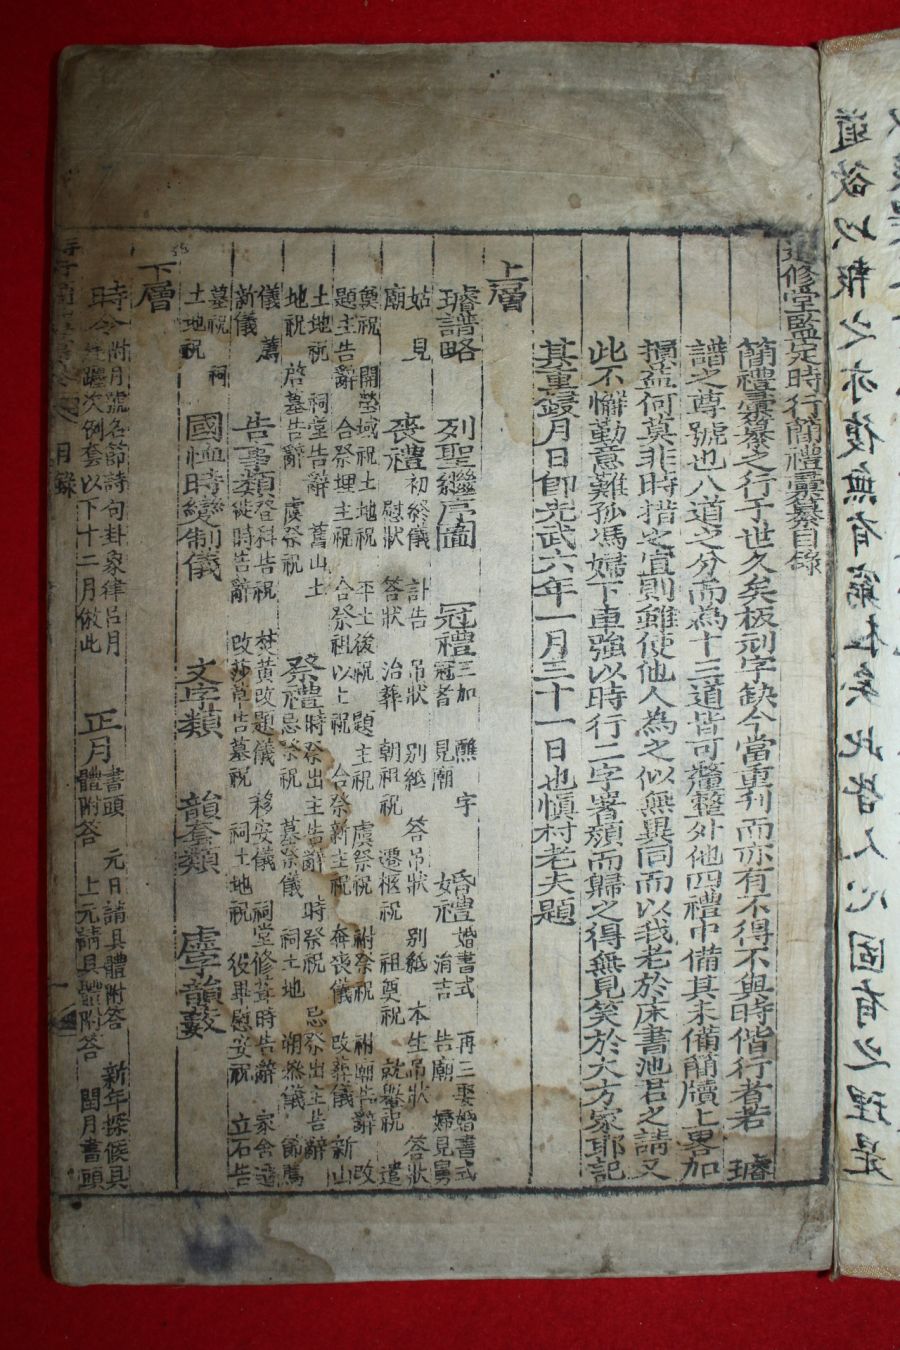 進修堂監定時行簡禮彙纂目錄
簡禮彙纂之行于世久矣板刓字缺今當重刊而亦有不得不與時偕行者若 璿
譜之尊號也八道之分而為十三道皆可釐整外他四禮中備其未備簡牘上畧加
櫽葢何莫非時措之宜則雖使他人為之似無異同而以我老於床書池君之請又
此不懈勤意難孤馮婦下車強以時行二字署頹而歸之得無見笑於大方家耶記
其重鋟月日卽光武六年一月三十一日也愼村老夫題
上層
璿譜略 列聖繼序圖 冠禮 三加 醮 字 冠者 見廟 婚禮 婚書式 再三娶婚書式 婚 涓吉 告廟 婦見舅
姑 見廟 喪禮 初終儀 訃告 吊狀 別紙 答吊狀 別紙 本生吊狀 答狀 慰狀 答狀 治葬 朝祖祝 遷柩祝 祖奠祝 就轝祝 遣
奠祝 開塋域祝土地祝 平土後祝 題主祝 虞祭祝 祔祭祝 祔廟告辭 改
題主告辭 合祭埋主祝 合祭祖以上祝 合祭新主祝 奔喪儀 改葬儀 新山
土地祝 祠堂告辭 舊山土地祝 啓墓告辭 虞祭祝 祭禮 時祭出主告辭 時祭祝 忌祭出主告辭 忌祭祝 墓祭儀 祠土地 朔參儀 節薦
儀 薦新儀 告事類 登科告祝 焚黃改題儀 移安儀 祠堂修葺時告辭 家舍造 徙時告辭 改莎草告墓祝 祠土地祝 役畢慰安祝 立石告
墓祝 祠土地祝 國恤時變制儀 文字類 韻套類 虛字韻藪
下層
時令 附月號名節詩句卦象律呂月 令 躔次例套以下十二月倣此 正月 書頭 元日請具體附答 新年探候具 體附答 上元請具體附答 閏月書頭
目錄
道欲以報之亦復無有窮
此皆人心固有之理是